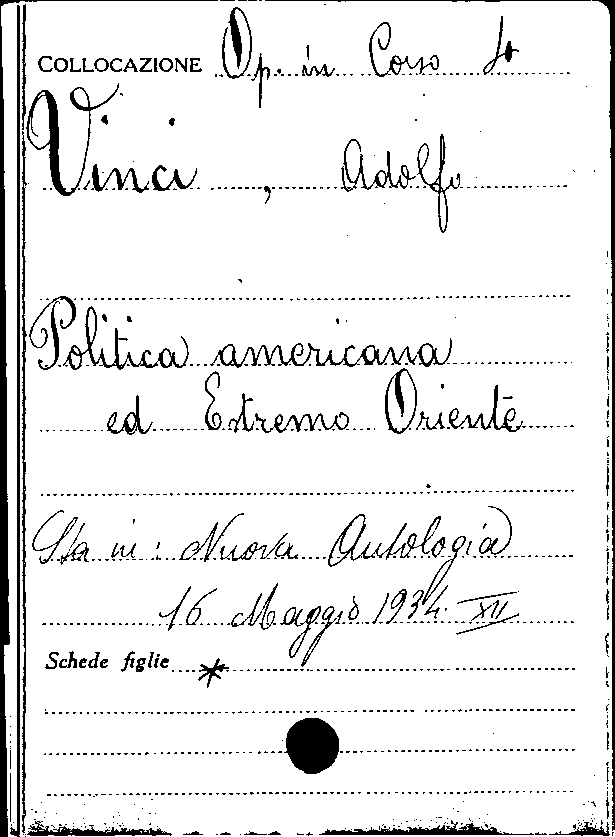 COLLOCAZIONE Op. in Corso 4
Vinci, Adolfo
Politica americana
ed Estremo Oriente
Sta in: Nuova Antologia
16 Maggio 1934. XII
Schede figlie *